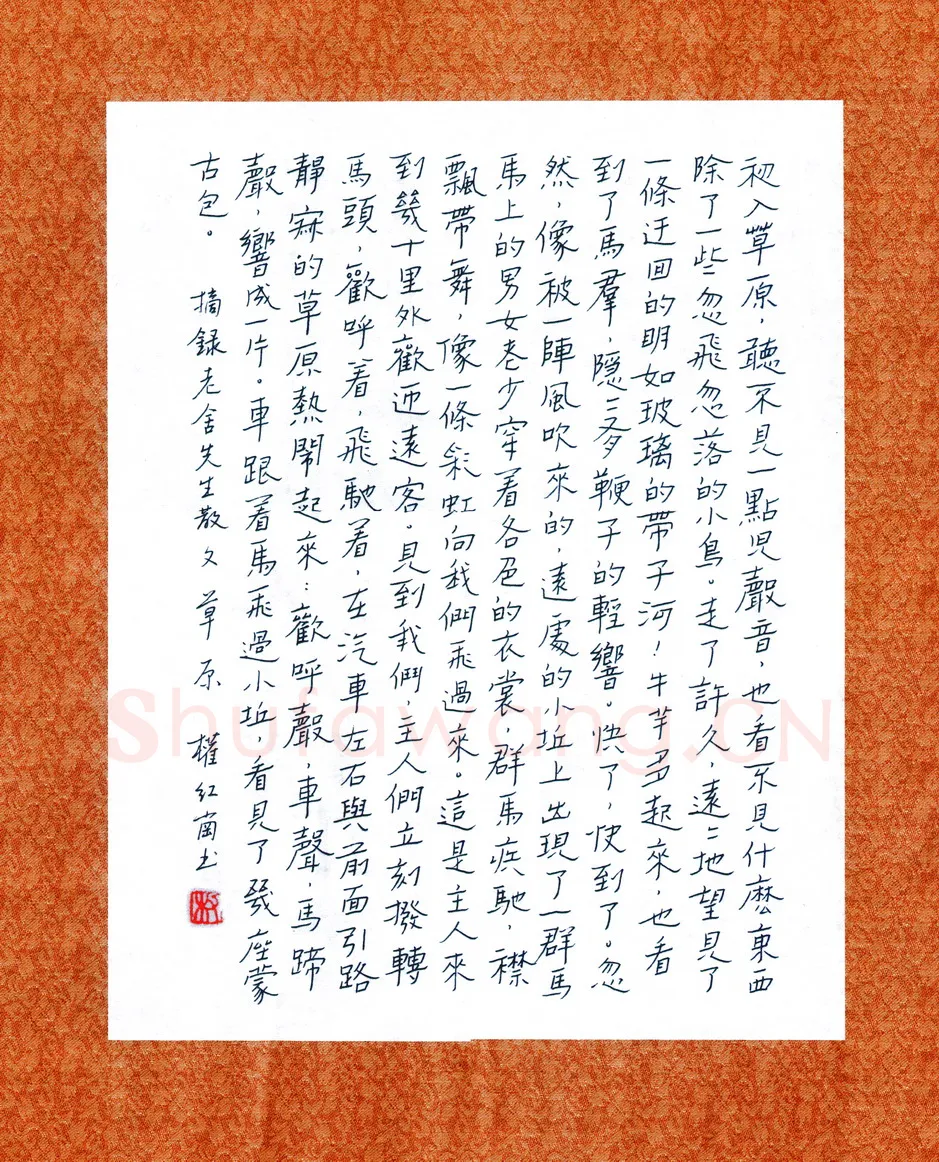 初入草原，聽不見一點兒聲音，也看不見什麽東西
除了一些忽飛忽落的小鳥。走了許久，遠〻地望見了
一條迂回的明如玻璃的帶子河！牛羊多起來，也看
到了馬羣，隱〻有鞭子的輕響。快了，快到了。忽
然，像被一陣風吹來的，遠處的小丘上出現了一群馬
馬上的男女老少穿着各色的衣裳，群馬疾馳，襟
飄帶舞，像一條彩虹向我們飛過來。這是主人來
到幾十里外歡迎遠客。見到我們，主人們立刻撥轉
馬頭，歡呼着，飛馳着，在汽車左右與前面引路
靜寂的草原熱鬧起來：歡呼聲，車聲，馬蹄
聲，響成一片。車跟着馬飛過小丘，看見了幾座蒙
古包。 摘錄老舍先生散文 草原 權紅南书
Shufawang.CN